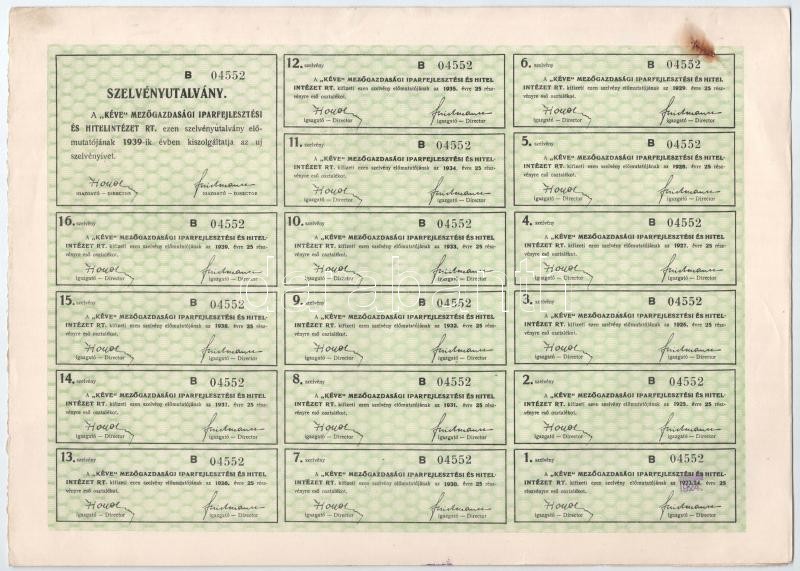 B 04552
SZELVÉNYUTALVÁNY.
A „KÉVE" MEZŐGAZDASÁGI IPARFEJLESZTÉSI
ÉS HITELINTÉZET RT. ezen szelvényutalvány elő-
mutatójának 1939-ik évben kiszolgáltatja az uj
szelvényivet.
IGAZGATÓ — DIRECTOR IGAZGATÓ — DIRECTOR
16. szelvény B 04552
A „KÉVE" MEZŐGAZDASÁGI IPARFEJLESZTÉSI ÉS HITEL-
INTÉZET RT. kifizeti ezen szelvény előmutatójának az 1939. évre 25 rész-
vényre eső osztalékot.
Igazgató — Director Igazgató — Director
15. szelvény B 04552
A „KÉVE" MEZŐGAZDASÁGI IPARFEJLESZTÉSI ÉS HITEL-
INTÉZET RT. kifizeti ezen szelvény előmutatójának az 1938. évre 25 rész-
vényre eső osztalékot.
Igazgató — Director Igazgató — Director
14. szelvény B 04552
A „KÉVE" MEZŐGAZDASÁGI IPARFEJLESZTÉSI ÉS HITEL-
INTÉZET RT. kifizeti ezen szelvény előmutatójának az 1931. évre 25 rész-
vényre eső osztalékot.
Igazgató — Director Igazgató — Director
13. szelvény B 04552
A „KÉVE" MEZŐGAZDASÁGI IPARFEJLESZTÉSI ÉS HITEL-
INTÉZET RT. kifizeti ezen szelvény előmutatójának az 1936. évre 25 rész-
vényre eső osztalékot.
Igazgató — Director Igazgató — Director
12. szelvény B 04552
A „KÉVE" MEZŐGAZDASÁGI IPARFEJLESZTÉSI ÉS HITEL
INTÉZET RT. kifizeti ezen szelvény előmutatójának az 1935. évre 25 rész-
vényre eső osztalékot.
Igazgató — Director Igazgató — Director
11. szelvény B 04552
A „KÉVE" MEZŐGAZDASÁGI IPARFEJLESZTÉSI ÉS HITEL-
INTÉZET RT. kifizeti ezen szelvény előmutatójának az 1934. évre 25 rész-
vényre eső osztalékot.
Igazgató — Director Igazgató — Director
10. szelvény B 04552
A „KÉVE" MEZŐGAZDASÁGI IPARFEJLESZTÉSI ÉS HITEL-
INTÉZET RT. kifizeti ezen szelvény előmutatójának az 1933. évre 25 rész-
vényre eső osztalékot.
Igazgató — Director Igazgató — Director
9. szelvény B 04552
A „KÉVE" MEZŐGAZDASÁGI IPARFEJLESZTÉSI ÉS HITEL-
INTÉZET RT. kifizeti ezen szelvény előmutatójának az 1932. évre 25 rész-
vényre eső osztalékot.
Igazgató — Director Igazgató — Director
8. szelvény B 04552
A „KÉVE" MEZŐGAZDASÁGI IPARFEJLESZTÉSI ÉS HITEL-
INTÉZET RT. kifizeti ezen szelvény előmutatójának az 1931. évre 25 rész-
vényre eső osztalékot.
Igazgató — Director Igazgató — Director
7. szelvény B 04552
A „KÉVE" MEZŐGAZDASÁGI IPARFEJLESZTÉSI ÉS HITEL-
INTÉZET RT. kifizeti ezen szelvény előmutatójának az 1930. évre 25 rész-
vényre eső osztalékot.
Igazgató — Director Igazgató — Director
6. szelvény B 04552
A „KÉVE" MEZŐGAZDASÁGI IPARFEJLESZTÉSI ÉS HITEL
INTÉZET RT. kifizeti ezen szelvény előmutatójának az 1929. évre 25 rész-
vényre eső osztalékot.
Igazgató — Director Igazgató — Director
5. szelvény B 04552
A „KÉVE" MEZŐGAZDASÁGI IPARFEJLESZTÉSI ÉS HITEL-
INTÉZET RT. kifizeti ezen szelvény előmutatójának az 1928. évre 25 rész-
vényre eső osztalékot.
Igazgató — Director Igazgató — Director
4. szelvény B 04552
A „KÉVE" MEZŐGAZDASÁGI IPARFEJLESZTÉSI ÉS HITEL-
INTÉZET RT. kifizeti ezen szelvény előmutatójának az 1927. évre 25 rész-
vényre eső osztalékot.
Igazgató — Director Igazgató — Director
3. szelvény B 04552
A „KÉVE" MEZŐGAZDASÁGI IPARFEJLESZTÉSI ÉS HITEL-
INTÉZET RT. kifizeti ezen szelvény előmutatójának az 1926. évre 25 rész-
vényre eső osztalékot.
Igazgató — Director Igazgató — Director
2. szelvény B 04552
A „KÉVE" MEZŐGAZDASÁGI IPARFEJLESZTÉSI ÉS HITEL-
INTÉZET RT. kifizeti ezen szelvény előmutatójának az 1925. évre 25 rész-
vényre eső osztalékot.
Igazgató — Director Igazgató — Director
1. szelvény B 04552
A „KÉVE" MEZŐGAZDASÁGI IPARFEJLESZTÉSI ÉS HITEL-
INTÉZET RT. kifizeti ezen szelvény előmutatójának az 1923/24. évre 25
részvényre eső osztalékot.
1924.
Igazgató — Director Igazgató — Director
darabanth